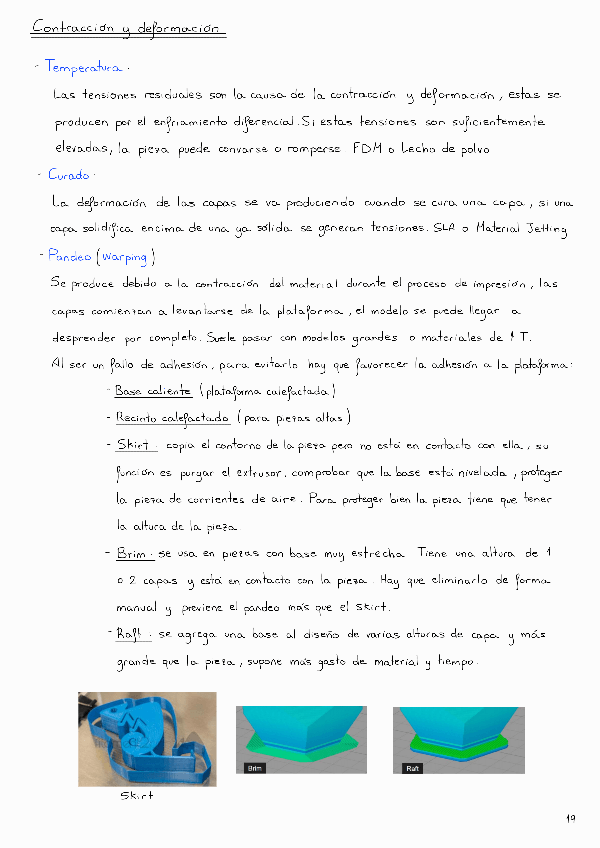 Contracción y deformación
- Temperatura.
Las tensiones residuales son la causa de la contracción y deformación, estas se
producen por el enfriamiento diferencial. Si estas tensiones son suficientemente
elevadas, la pieza puede curvarse o romperse FDM o Lecho de polvo
- Curado.
La deformación de las capas se va produciendo cuando se cura una capa, si una
capa solidifica encima de una ya sólida se generan tensiones. SLA o Material Jetting
- Pandeo (Warping)
Se produce debido a la contracción del material durante el proceso de impresión, las
capas comienzan a levantarse de la plataforma, el modelo se puede llegar a
desprender por completo. Suele pasar con modelos grandes o materiales de ↑ T.
Al ser un fallo de adhesión, para evitarlo hay que favorecer la adhesión a la plataforma:
- Base caliente (plataforma calefactada)
- Recinto calefactado (para piezas altas)
- Skirt. copia el contorno de la pieza pero no está en contacto con ella, su
función es purgar el extrusor, comprobar que la base está nivelada, proteger
la pieza de corrientes de aire. Para proteger bien la pieza tiene que tener
la altura de la pieza.
- Brim. se usa en piezas con base muy estrecha. Tiene una altura de 1
o 2 capas y está en contacto con la pieza. Hay que eliminarlo de forma
manual y previene el pandeo más que el skirt.
- Raft. se agrega una base al diseño de varias alturas de capa y más
grande que la pieza, supone más gasto de material y tiempo.
Brim
Raft
Skirt
19